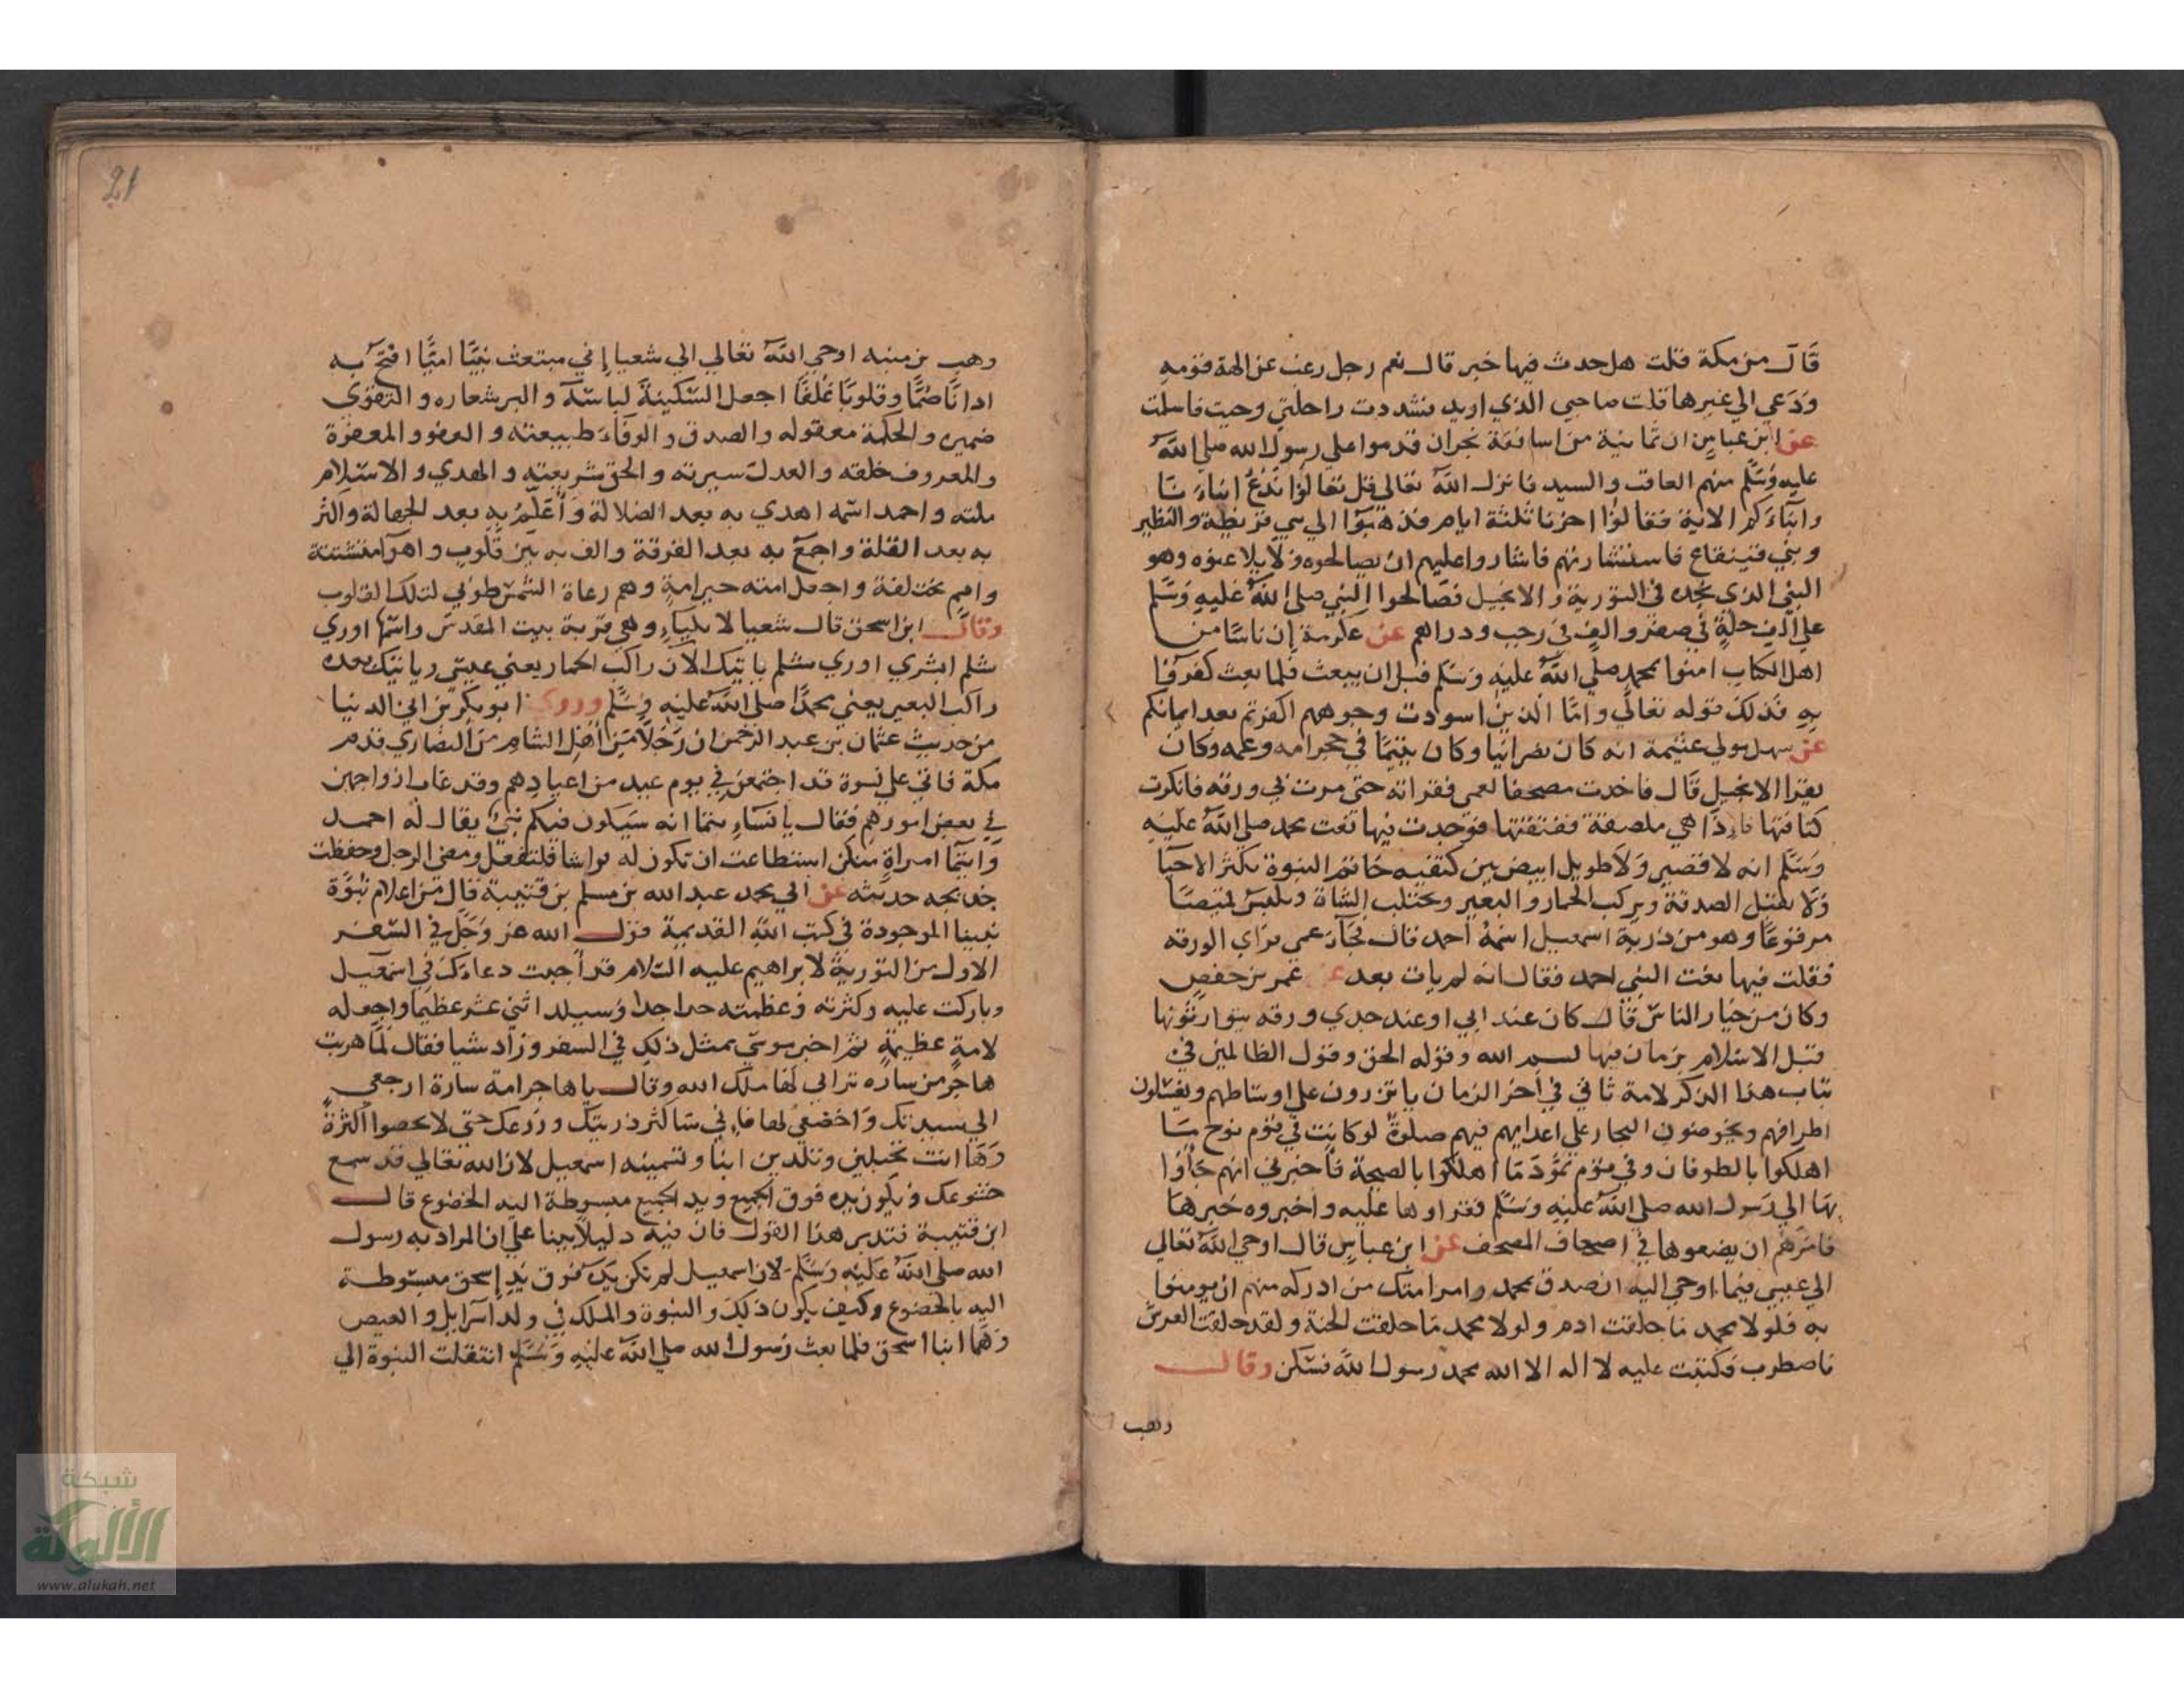 قال من مكة قلت هل حدث فيها خبر قال نعم رجل رغب عن الهة قومه
ودعي الي غيرها قلت صاحبي الذي اريد فشددت راحلتي وجيت فاسلمت
عن ابن عباس ان ثمانية من اساقفة نجران قدموا علي رسول الله صلي الله
عليه وسلم منهم العاقب والسيد فانزل الله تعالي قل تعالوا ندع ابناءنا
وابناءكم الاية فقالوا اخرنا ثلثة ايام فذهبوا الي بني قريظة والنظير
وبني قينقاع فاستشارتهم فاشاروا عليهم ان يصالحوه ولا يلاعنوه وهو
النبي الذي نجده في التورية والانجيل فصالحوا النبي صلي الله عليه وسلم
علي الف حلة في صفر والف في رجب ودراهم عن عكرمة ان ناسا من
اهل الكتاب امنوا بمحمد صلي الله عليه وسلم قبل ان يبعث فلما بعث كفروا
به فذلك قوله تعالي واما الذين اسودت وجوههم اكفرتم بعد ايمانكم
عن سهل مولي عثيمة انه كان نصرانيا وكان يتيما في حجر امه وعمه وكان
يقرا الانجيل قال فاخذت مصحفا لعمي فقراته حتي مرت بي ورقه فانكرت
كثافتها فاذا هي ملصقة ففتقتها فوجدت فيها نعت محمد صلي الله عليه
وسلم انه لا قصير ولا طويل ابيض بين كتفيه خاتم النبوة يكثر الاحتبا
ولا يقبل الصدقة ويركب الحمار والبعير ويحتلب الشاة ويلبس قميصا
مرقوعا وهو من ذرية اسمعيل اسمه احمد قال فجآء عمي فراي الورقه
فقلت فيها نعت النبي احمد فقال انه لم يات بعد عن عمر بن حفص
وكان من خيار الناس قال كان عند ابي او عند جدي ورقه يتوارثونها
قبل الاسلام بزمان فيها بسم الله وقوله الحق وقول الظالمين في
تباب هذا الذكر لامة تاتي في اخر الزمان ياتزرون علي اوساطهم ويغسلون
اطرافهم ويخوضون البحار علي اعدايهم فيهم صلوة لو كانت في قوم نوح ما
اهلكوا بالطوفان وفي قوم ثمود ما اهلكوا بالصيحة فاخبرني انهم جاؤا
بها الي رسول الله صلي الله عليه وسلم فقراوها عليه واخبروه خبرها
فامرهم ان يضعوها في اصحاف المصحف عن ابن عباس قال اوحي الله تعالي
الي عيسي فيما اوحي اليه ان صدق بمحمد وامر امتك من ادركه منهم ان يومنوا
به فلولا محمد ما خلقت ادم ولولا محمد ما خلقت الجنة ولقد خلقت العرش
فاضطرب فكتبت عليه لا اله الا الله محمد رسول الله فسكن وقال
وهب
21
وهب بن منبه اوحي الله تعالي الي شعيا إني مبتعث نبيّا اميّا افتح به
اذانا صمّا وقلوبا غلفا اجعل السكينة لباسه والبر شعاره والتقوي
ضميره والحكمة معقوله والصدق والوفاء طبيعته والعفو والمغفرة
والمعروف خلقه والعدل سيرته والحق شريعته والهدي والاسلام
ملته واحمد اسمه اهدي به بعد الضلالة وأعلم به بعد الجهالة واكثر
به بعد القلة واجمع به بعد الفرقة والف به بين قلوب واهوآ متشتتة
وامم مختلفة واجعل امته خير امة وهم رعاة الشمس طوبي لتلك القلوب
وقال ابن اسحق قال شعيا لايلياء وهي قرية بيت المقدس واسمها اوري
شلم ابشري اوري شلم ياتيك الآن راكب الحمار يعني عيسي وياتيك بعده
راكب البعير يعني محمدا صلي الله عليه وسلم وروي ابو بكر بن ابي الدنيا
من حديث عثمان بن عبد الرحمن ان رجلا من أهل الشام من النصاري قدم
مكة فاتي علي نسوة قد اجتمعن في يوم عيد من اعيادهم وقد غاب ازواجهن
في بعض امورهم فقال يا نساء تيما انه سيكون فيكم نبي يقال له احمد
وايما امراة منكن استطاعت ان تكون له فراشا فلتفعل ومضي الرجل وحفظت
خديجه حديثه عن ابي محمد عبد الله بن مسلم بن قتيبة قال من اعلام نبوّة
نبينا الموجودة في كتب الله القديمة قول الله عز وجل في السفر
الاول من التورية لابراهيم عليه السلام قد أجبت دعاءك في اسمعيل
وباركت عليه وكثرته وعظمته جدا جدا وسيلد اثني عشر عظيما واجعله
لامة عظيمة ثم اخبر موسي بمثل ذلك في السفر وزاد شيا فقال لما هربت
هاجر من ساره تراي لها ملك الله وقال يا هاجر امة سارة ارجعي
الي سيدتك واخضعي لها فإني ساكثر ذريتك وزرعك حتي لا يحصوا اكثرة
وها انت تحبلين وتلدين ابنا وتسمينه اسمعيل لان الله تعالي قد سمع
خشوعك وتكون يده فوق الجميع ويد الجميع مبسوطة اليه بالخضوع قال
ابن قتيبة فتدبر هذا القول فان فيه دليلا بينا علي ان المراد به رسول
الله صلي الله عليه وسلم لان اسمعيل لم تكن يده فوق يد إسحق مبسوطة
اليه بالخضوع وكيف يكون ذلك والنبوة والملك في ولد اسرايل والعيص
وهما ابنا اسحق فلما بعث رسول الله صلي الله عليه وسلم انتقلت النبوة الي
شبكة
الألوكة
www.alukah.net